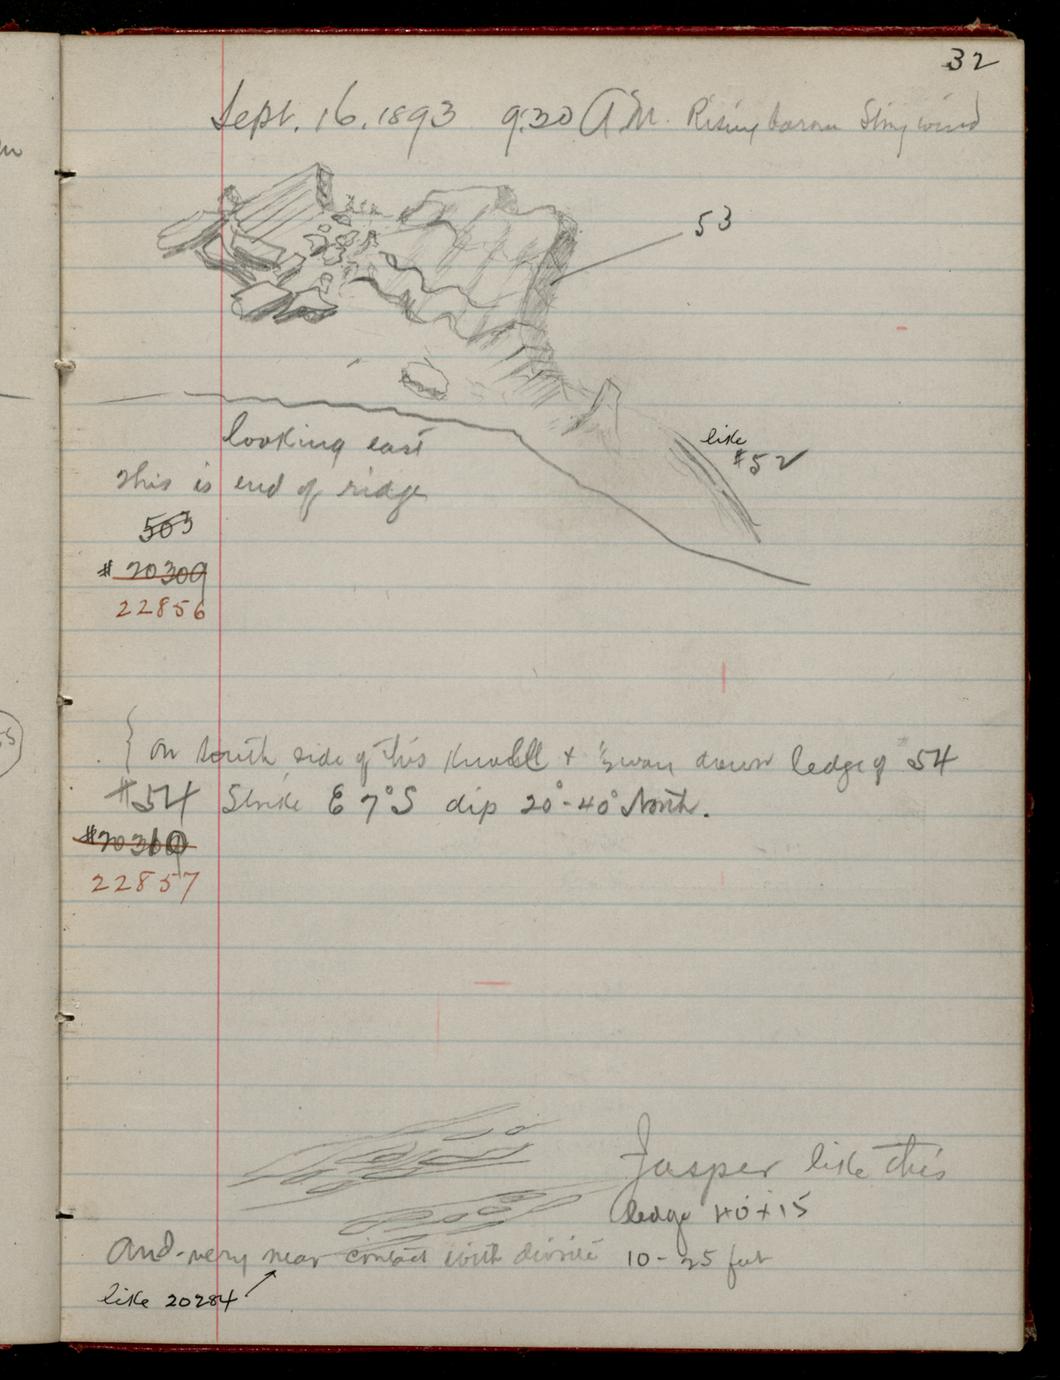 32
Sept. 16. 1893 9:30 A.M. Rising barom Stng wind
53
like
#52
looking east
This is end of ridge
503
#20309
22856
On south side of this Knoll + way down ledge of 54
#54 Strike E 7° S dip 20°-40° North.
#20310
22857
Jasper like this
ledge 40 + 15
And very near contact with diorite 10 - 25 feet
like 20284